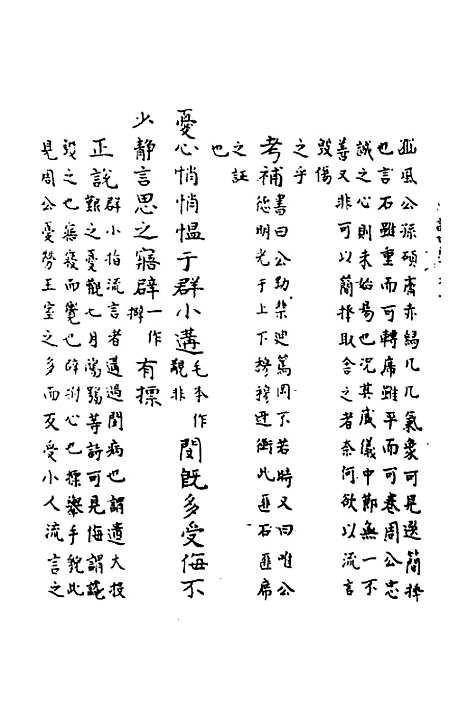 狐風公孫碩膚赤舄几几氣象可見選簡擇
也言石雖重而可轉席雖平而可卷周公忠
誠之心則未始易也况其威儀中節無一不
善又非可以簡擇取舍之者奈何欲以流言
毀傷
之乎
考補書曰公劼棐迪篤罔不若時又曰惟公
德明光于上下穆穆迓衡此匪石匪席
之証
也
憂心悄悄愠于群小遘毛本作覯非閔既多受侮不
少靜言思之寤辟一作擗有摽
正説群小指流言者遘遇閔病也謂遭大投
艱之憂觀七月鴟鴞等詩可見侮謂詆
毀之也寤寐而覺也辟拊心也摽舉手貌此
見周公憂勞王室之多而反受小人流言之